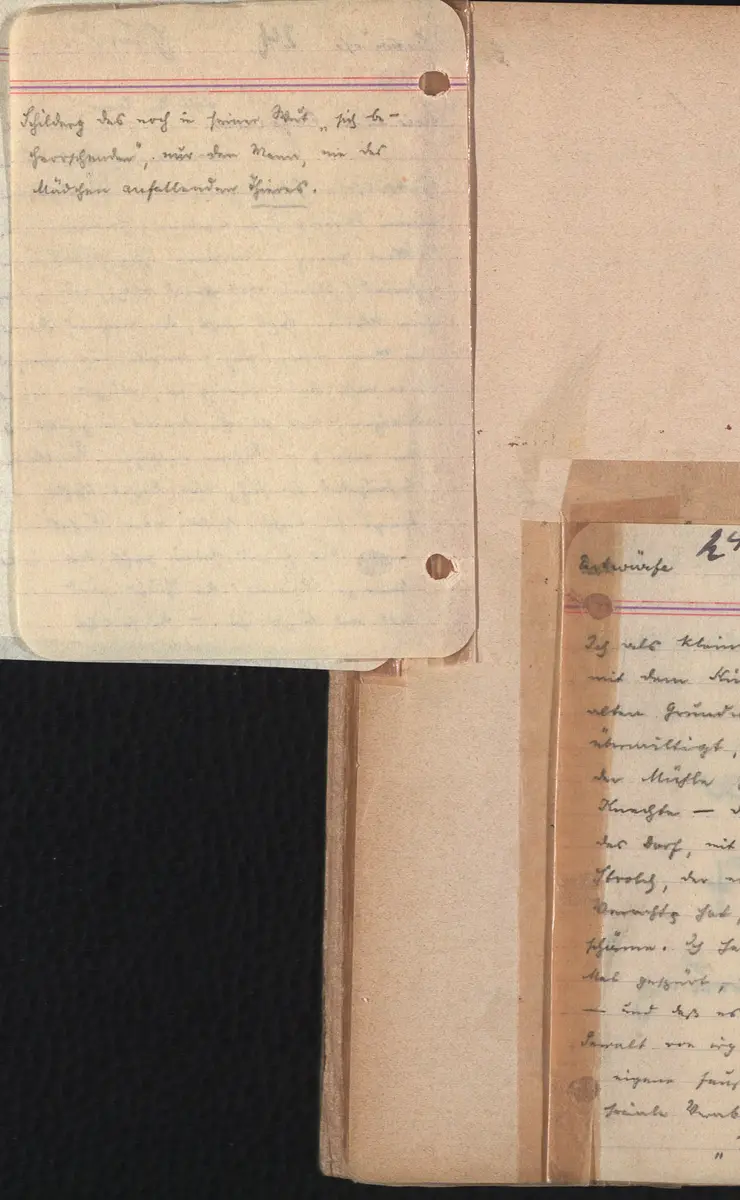 Schilderg des noch in seiner Wut „sich be-
herrschenden", nur den Mann, nie das
Mädchen anfallenden Thieres.
Entwürfe
24
Ich als klein
mit dem
alten Grund
überwältigt,
der Mühle
Knechte —
das Dorf, mit
Strolch, der
Verachtg hat,
schäme. Ich ha
Mal gespürt,
— und daß es
Gewalt von irg
eigene
soziale Verab
"